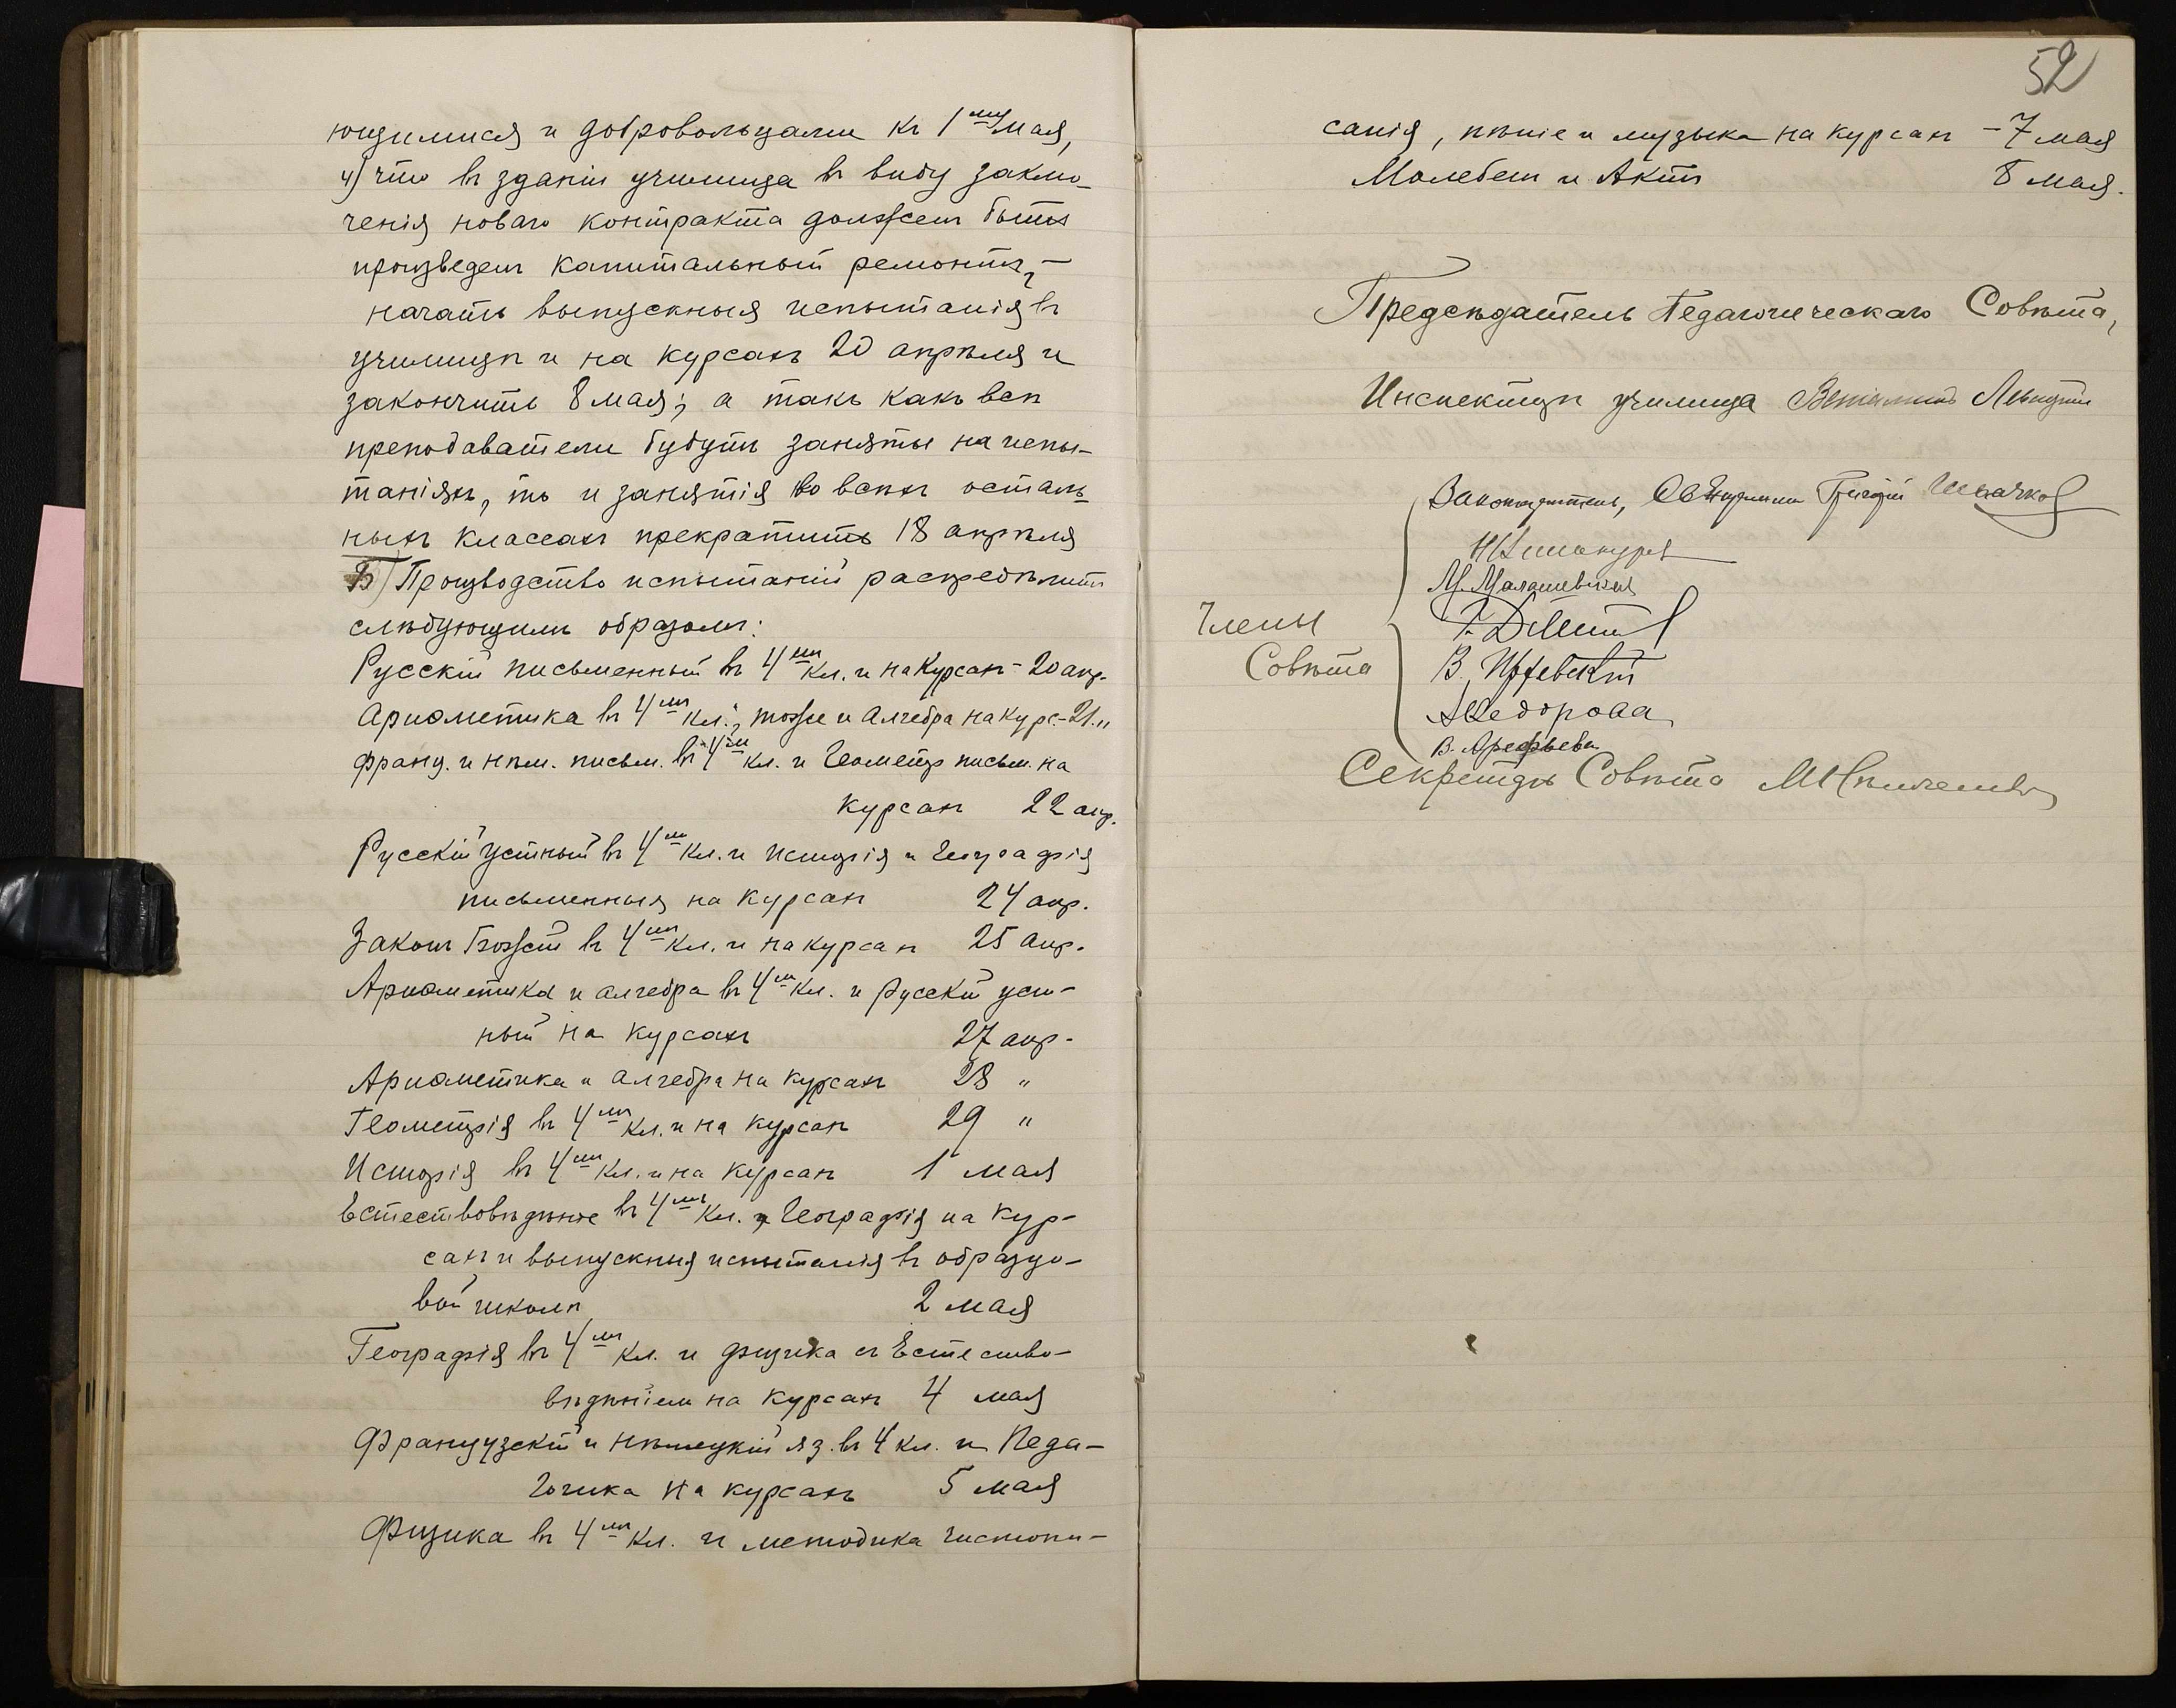 ющимися и добровольцами къ 1му мая,
4) что въ зданіи училища въ виду заклю-
ченія новаго контракта долженъ быть
произведенъ капитальный ремонтъ, -
начать выпускныя испытанія въ
училищѣ и на курсахъ 20 апрѣля и
закончить 8 мая; а такъ какъ всѣ
преподаватели будутъ заняты на испы-
таніяхъ, то и занятія во всѣхъ осталь-
ныхъ классахъ прекратить 18 апрѣля
Б) Производство испытаній распредѣлить
слѣдующимъ образомъ:
Русскій письменный въ 4мъ кл. и на Курсахъ - 20 апр.
Ариѳметика въ 4мъ кл.; тоже и Алгебра на курс. - 21 "
Франц. и нѣм. письм. въ 4мъ кл. и Геометр письм. на
курсахъ 22 апр.
Русскій устный въ 4мъ кл. и Исторія и Географія
письменныя на курсахъ 24 апр.
Законъ Божій въ 4мъ кл. и на курсахъ 25 апр.
Ариѳметика и алгебра въ 4мъ кл. и Русскій уст-
ный на курсахъ 27 апр.
Ариѳметика и алгебра на курсахъ 28 "
Геометрія въ 4мъ кл. и на курсахъ 29 "
Исторія въ 4мъ кл. и на курсахъ 1 мая
Естествовѣдѣніе въ 4мъ кл. и Географія на кур-
сахъ и выпускныя испытанія въ образцо-
вой школѣ 2 мая
Географія въ 4мъ кл. и физика съ Естество-
вѣдѣніемъ на курсахъ 4 мая
Французскій и Нѣмецкій яз. въ 4 кл. и Педа-
гогика на курсахъ 5 мая
Физика въ 4мъ кл. и методика чистопи-
52
санія, пѣніе и музыка на курсахъ - 7 мая
Молебенъ и Актъ 8 мая.
Предсѣдатель Педагогическаго Совѣта,
Инспекторъ училища
Законоучитель, Священникъ Григорій
М. Малашевская
Члены
Совѣта
Ѳедорова
В. Арефьева
Секретарь Совѣта